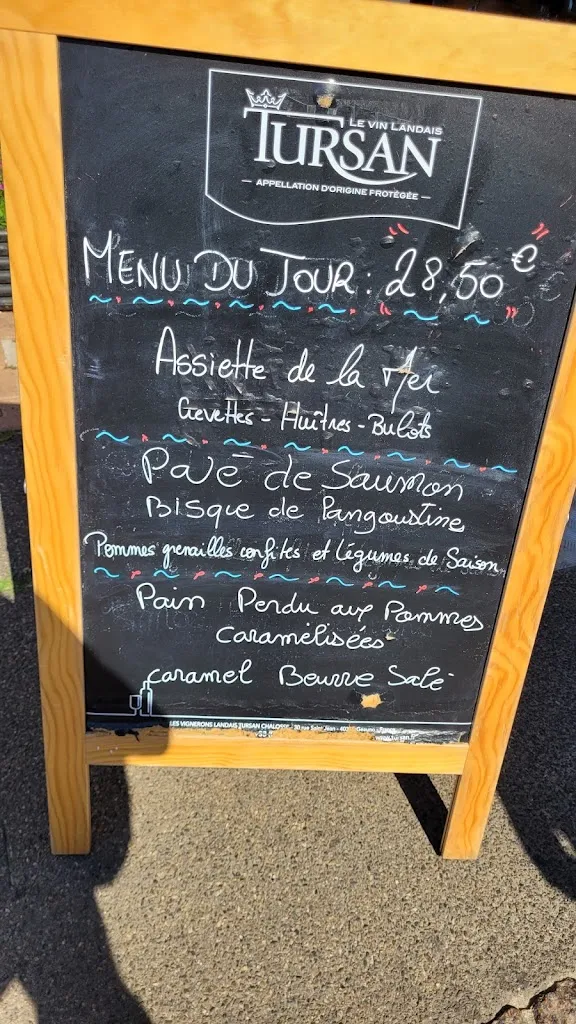 LE VIN LANDAIS
TURSAN
— APPELLATION D'ORIGINE PROTÉGÉE —
MENU DU JOUR : "28,50 €"
Assiette de la Mer
Crevettes - Huîtres - Bulots
Pavé de Saumon
Bisque de Langoustine
Pommes grenailles confites et Légumes de Saison
Pain Perdu aux Pommes
Caramélisées
caramel Beurre Salé
LES VIGNERONS LANDAIS TURSAN CHALOSSE - 30 rue Saint Jean
www.tursan.fr